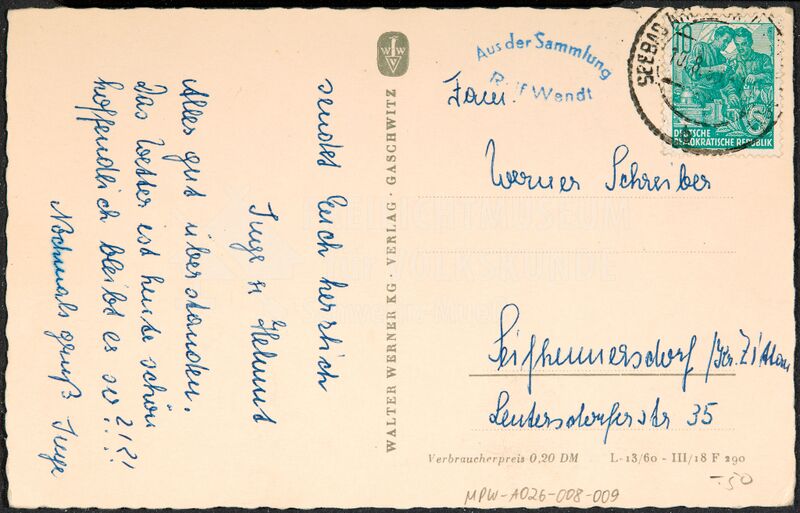 sendet Euch herzlich
Inge u Helmut
Alles gut überstanden.
Das Wetter ist heute schön
hoffendlich bleibt es so?!?!
Nochmals gruß Inge
WALTER WERNER KG · VERLAG · GASCHWITZ
W W
V
Aus der Sammlung
Rolf Wendt
SEEBAD
10
DEUTSCHE
DEMOKRATISCHE REPUBLIK
Fam.
Werner Schreiber
Seifhennersdorf / Kr. Zittau
Leutersdorferstr 35
Verbraucherpreis 0,20 DM L-13/60 - III/18 F 290
-.50
MPW-A026-008-009
FREILICHTMUSEUM
für VOLKSKUNDE
Schwerin-Mueß